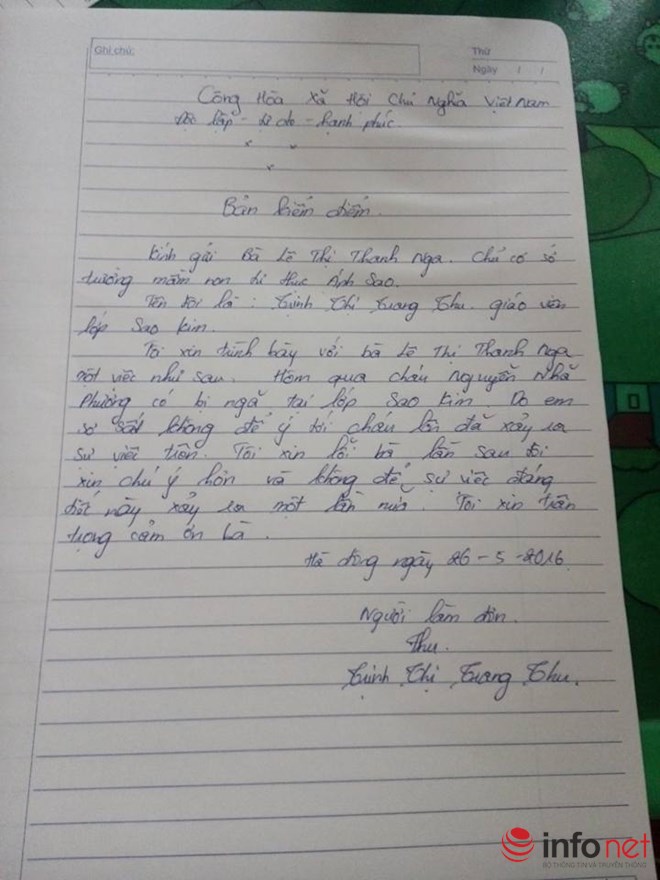 Ghi chú:
Thứ
Ngày / /
Cộng Hòa Xã Hội Chủ Nghĩa Việt Nam
Độc lập - tự do - hạnh phúc
Bản kiểm điểm.
Kính gửi Bà Lê Thị Thanh Nga. Chủ cơ sở
trường mầm non tư thục Ánh Sao.
Tên tôi là : Trịnh Thị Trang Thu. giáo viên
lớp Sao Kim.
Tôi xin trình bày với bà Lê Thị Thanh Nga
một việc như sau. Hôm qua cháu Nguyễn Nhã
Phương có bị ngã tại lớp Sao Kim. Do em
sơ suất không để ý tới cháu lên đã xảy ra
sự việc trên. Tôi xin lỗi bà lần sau tôi
xin chú ý hơn và không để sự việc đáng
tiếc này xảy ra một lần nữa. Tôi xin trân
trọng cảm ơn bà.
Hà đông ngày 26-5-2016.
Người làm đơn.
Thu.
Trịnh Thị Trang Thu.
infonet
BỘ THÔNG TIN VÀ TRUYỀN THÔNG